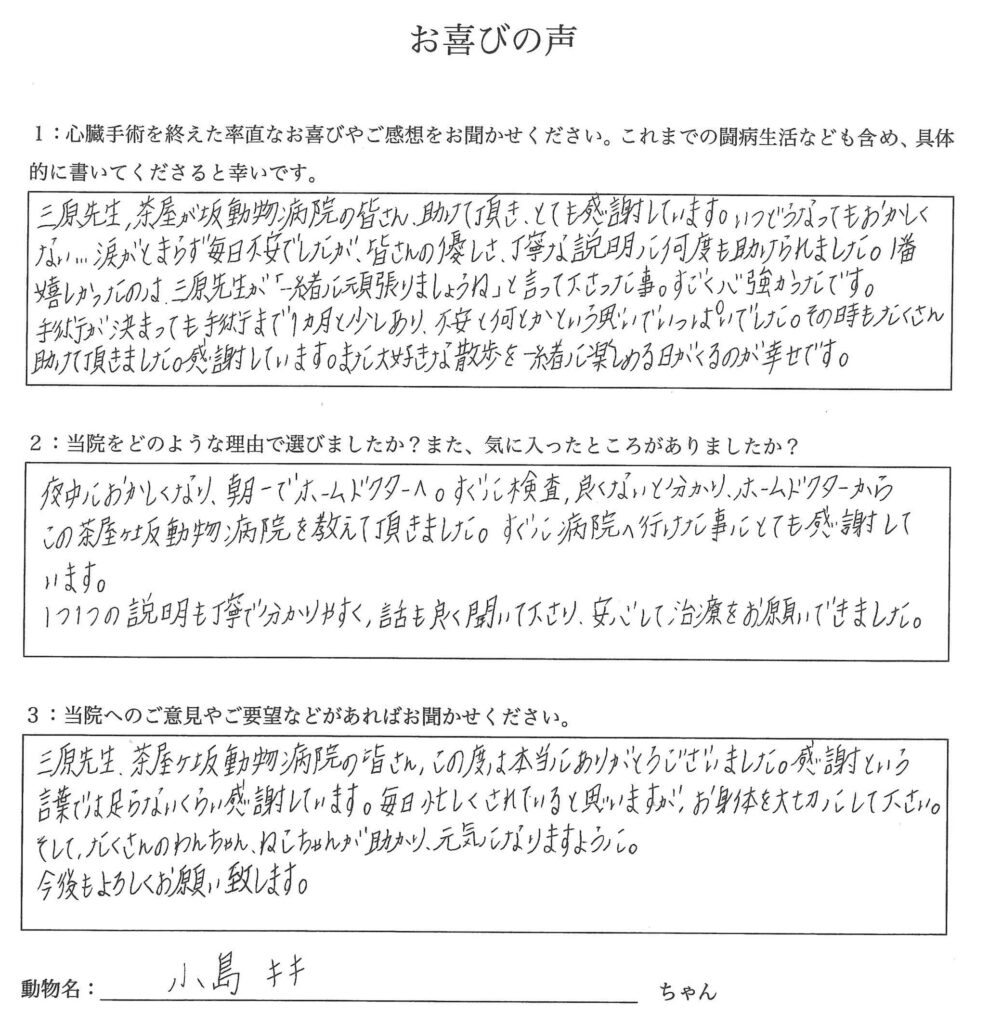 お喜びの声
1：心臓手術を終えた率直なお喜びやご感想をお聞かせください。これまでの闘病生活なども含め、具体
的に書いてくださると幸いです。
三原先生,茶屋が坂動物病院の皆さん、助けて頂き、とても感謝しています。いつどうなってもおかしく
ない…涙がとまらず毎日不安でしたが、皆さんの優しさ、丁寧な説明に何度も助けられました。1番
嬉しかったのは、三原先生が「一緒に頑張りましょうね」と言って下さった事。すごく心強かったです。
手術が決まっても手術まで1カ月と少しあり、不安と何とかという思いでいっぱいでした。その時もたくさん
助けて頂きました。感謝しています。また大好きな散歩を一緒に楽しめる日がくるのが幸せです。
2：当院をどのような理由で選びましたか？また、気に入ったところがありましたか？
夜中におかしくなり、朝一でホームドクターへ。すぐに検査,良くないと分かり、ホームドクターから
この茶屋ヶ坂動物病院を教えて頂きました。すぐに病院へ行けた事にとても感謝して
います。
1つ1つの説明も丁寧で分かりやすく,話も良く聞いて下さり、安心して治療をお願いできました。
3：当院へのご意見やご要望などがあればお聞かせください。
三原先生、茶屋ヶ坂動物病院の皆さん,この度は本当にありがとうございました。感謝という
言葉では足らないくらい感謝しています。毎日忙しくされていると思いますが、お身体を大切にして下さい。
そして,たくさんのわんちゃん、ねこちゃんが助かり、元気になりますように。
今後もよろしくお願い致します。
動物名：小島 キキ ちゃん